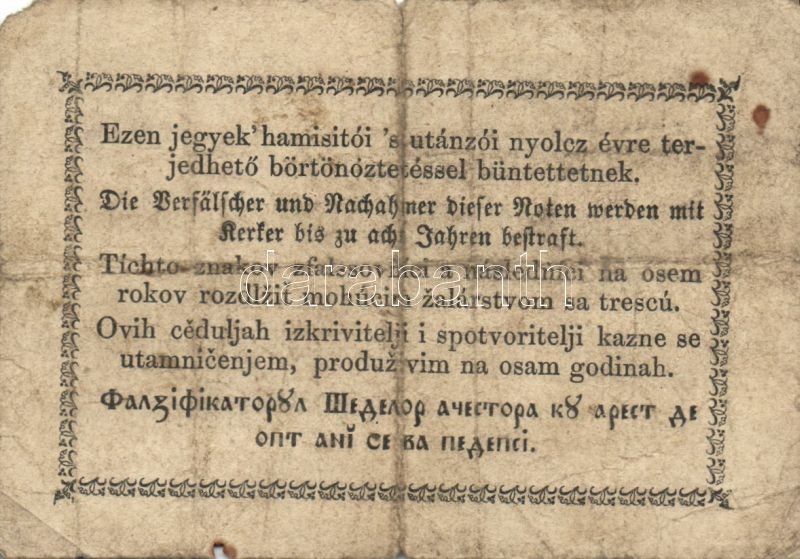 Ezen jegyek' hamisitói 's utánzói nyolcz évre ter-
jedhető börtönöztetéssel büntettetnek.
Die Verfälscher und Nachahmer dieser Noten werden mit
Kerker bis zu acht Jahren bestraft.
Tíchto znakov zfalšovníci a následníci na osem
rokov rozdlžiť mohúcim žalárstvom sa trescú.
databanth
Ovih cěduljah izkrivitelji i spotvoritelji kazne se
utamničenjem, produživim na osam godinah.
Фалꙁіфікаторꙋл Шеделор ачестора кꙋ арест де
опт анĭ се ва педепсі.